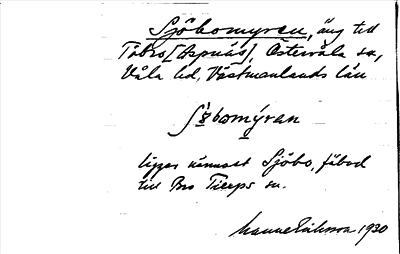 Sjöbomyren, äng till
Tåbro [Aspnäs], Östervåla sn,
Våla hd, Västmanlands län
sjȯ̀bomýran
ligger närmast Sjöbo, fäbod
till Bro Tierps sn.
Manne Eriksson 1930